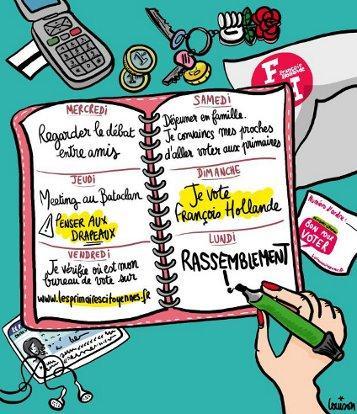 MERCREDI
Regarder le débat
entre amis
JEUDI
Meeting au Bataclan
PENSER AUX
DRAPEAUX
VENDREDI
Je vérifie où est mon
bureau de vote sur
www.lesprimairescitoyennes.fr
SAMEDI
Déjeuner en famille.
Je convaincs mes proches
d'aller voter aux primaires
DIMANCHE
Je vote
François Hollande
LUNDI
RASSEMBLEMENT
!
F
françois
hollande
BON POUR
VOTER
Louison